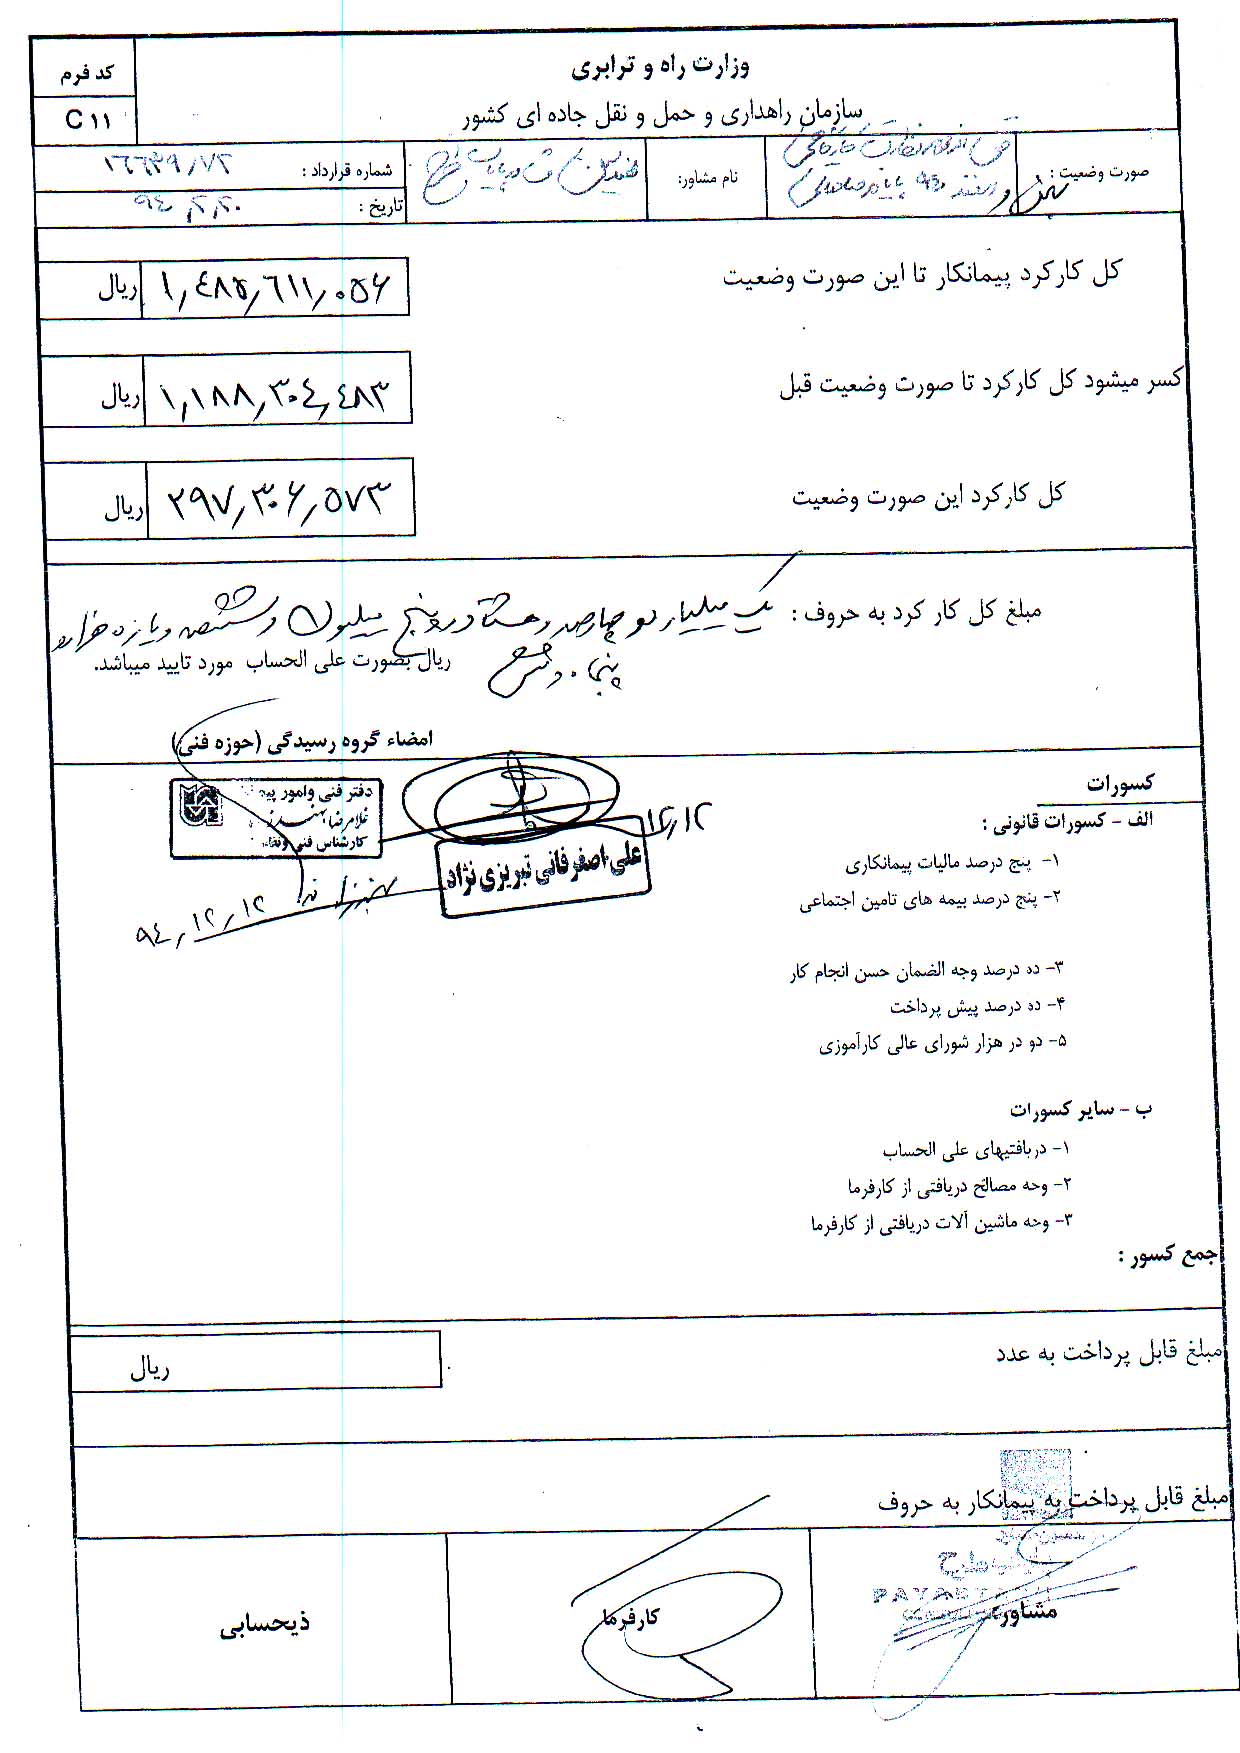 وزارت راه و ترابری
سازمان راهداری و حمل و نقل جاده ای کشور
کد فرم
C ۱۱
صورت وضعیت :
نام مشاور:
مهندسین مشاور پایاب طرح
شماره قرارداد : ۱۶۶۳۹/۷۲
تاریخ : ۹۴/۲/۲۰
کل کارکرد پیمانکار تا این صورت وضعیت
۱,۴۸۵,۶۱۱,۰۵۶ ریال
کسر میشود کل کارکرد تا صورت وضعیت قبل
۱,۱۸۸,۳۰۴,۴۸۳ ریال
کل کارکرد این صورت وضعیت
۲۹۷,۳۰۶,۵۷۳ ریال
مبلغ کل کار کرد به حروف : یک میلیارد و چهارصد و هشتاد و پنج میلیون و ششصد و یازده هزار و
پنجاه و شش ریال بصورت علی الحساب مورد تایید میباشد.
امضاء گروه رسیدگی (حوزه فنی)
دفتر فنی وامور
غلامرضا
کارشناس فنی
۱۲/۱۲
علی اصغر فانی تبریزی نژاد
۹۴/۱۲/۱۲
کسورات
الف - کسورات قانونی :
۱- پنج درصد مالیات پیمانکاری
۲- پنج درصد بیمه های تامین اجتماعی
۳- ده درصد وجه الضمان حسن انجام کار
۴- ده درصد پیش پرداخت
۵- دو در هزار شورای عالی کارآموزی
ب - سایر کسورات
۱- دریافتیهای علی الحساب
۲- وجه مصالح دریافتی از کارفرما
۳- وجه ماشین آلات دریافتی از کارفرما
جمع کسور :
مبلغ قابل پرداخت به عدد
ریال
مبلغ قابل پرداخت به پیمانکار به حروف
مشاور
کارفرما
ذیحسابی